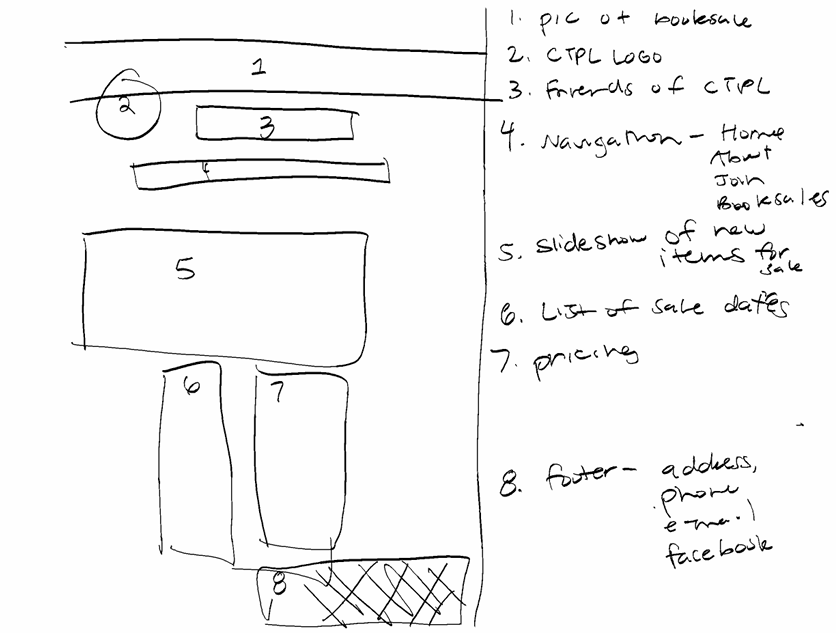 1
2
3
4
5
6
7
8
1. pic of booksale
2. CTPL LOGO
3. Friends of CTPL
4. Navigation - Home
About
Join
Booksales
5. slideshow of new
items for
sale
6. List of sale dates
7. pricing
8. footer - address,
phone
e-mail
facebook